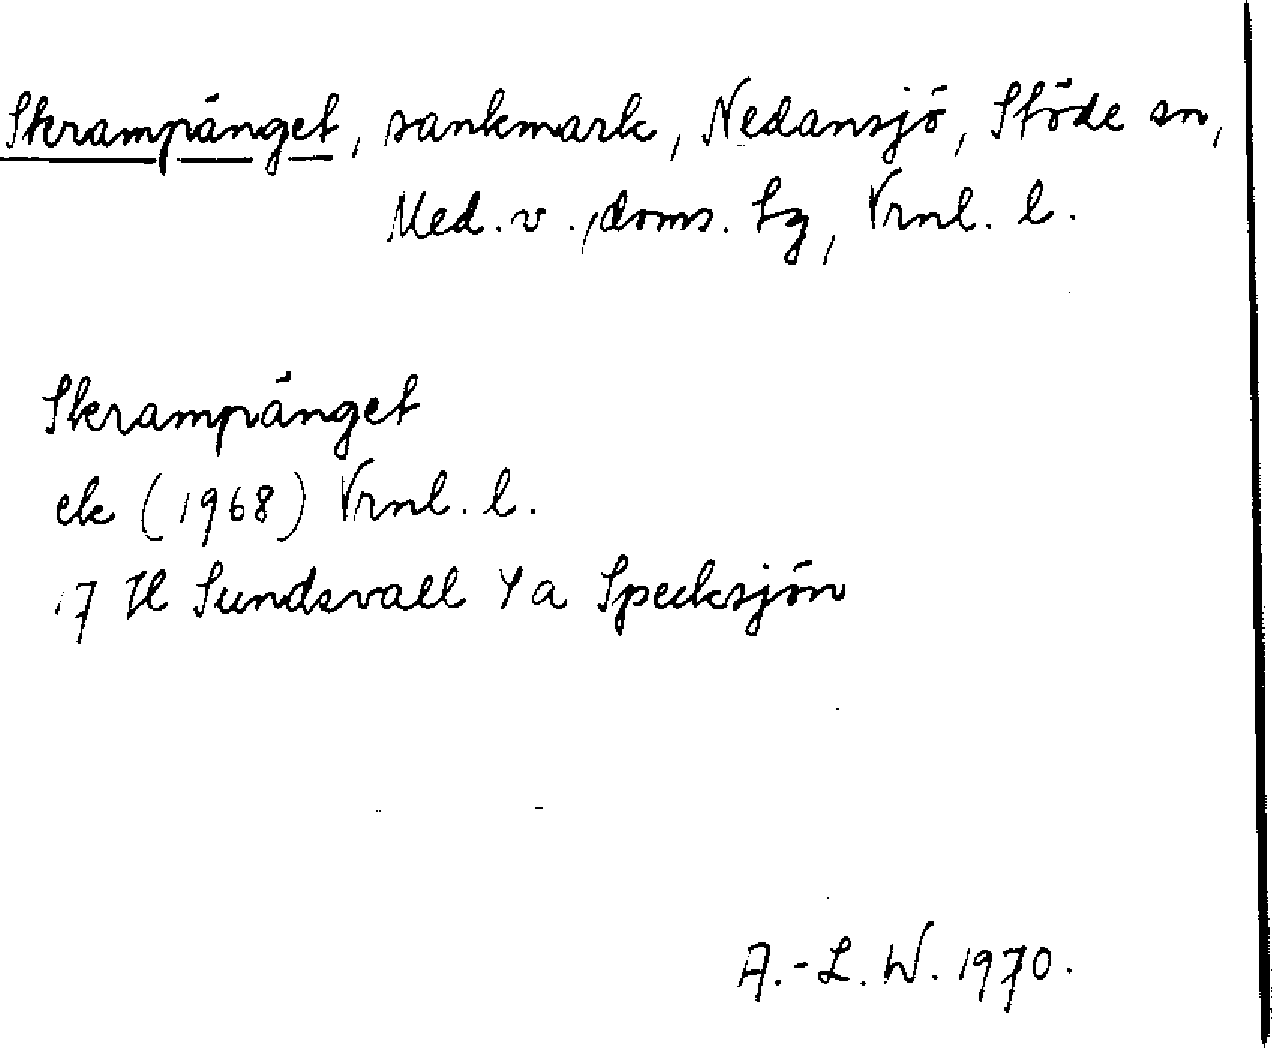 Skrampänget, sankmark, Nedansjö, Stöde sn,
Med. v., doms. tg, Vrnl. l.
Skrampänget
ek (1968) Vrnl. l.
17 H Sundsvall 4 a Specksjön
A.-L. W. 1970.